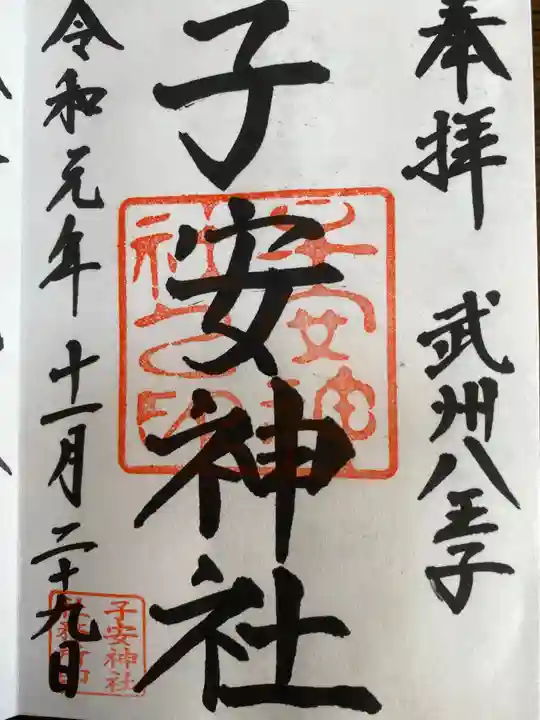 奉拝 武州八王子
子安神社
令和元年十一月二十九日
子安神社
社務所印